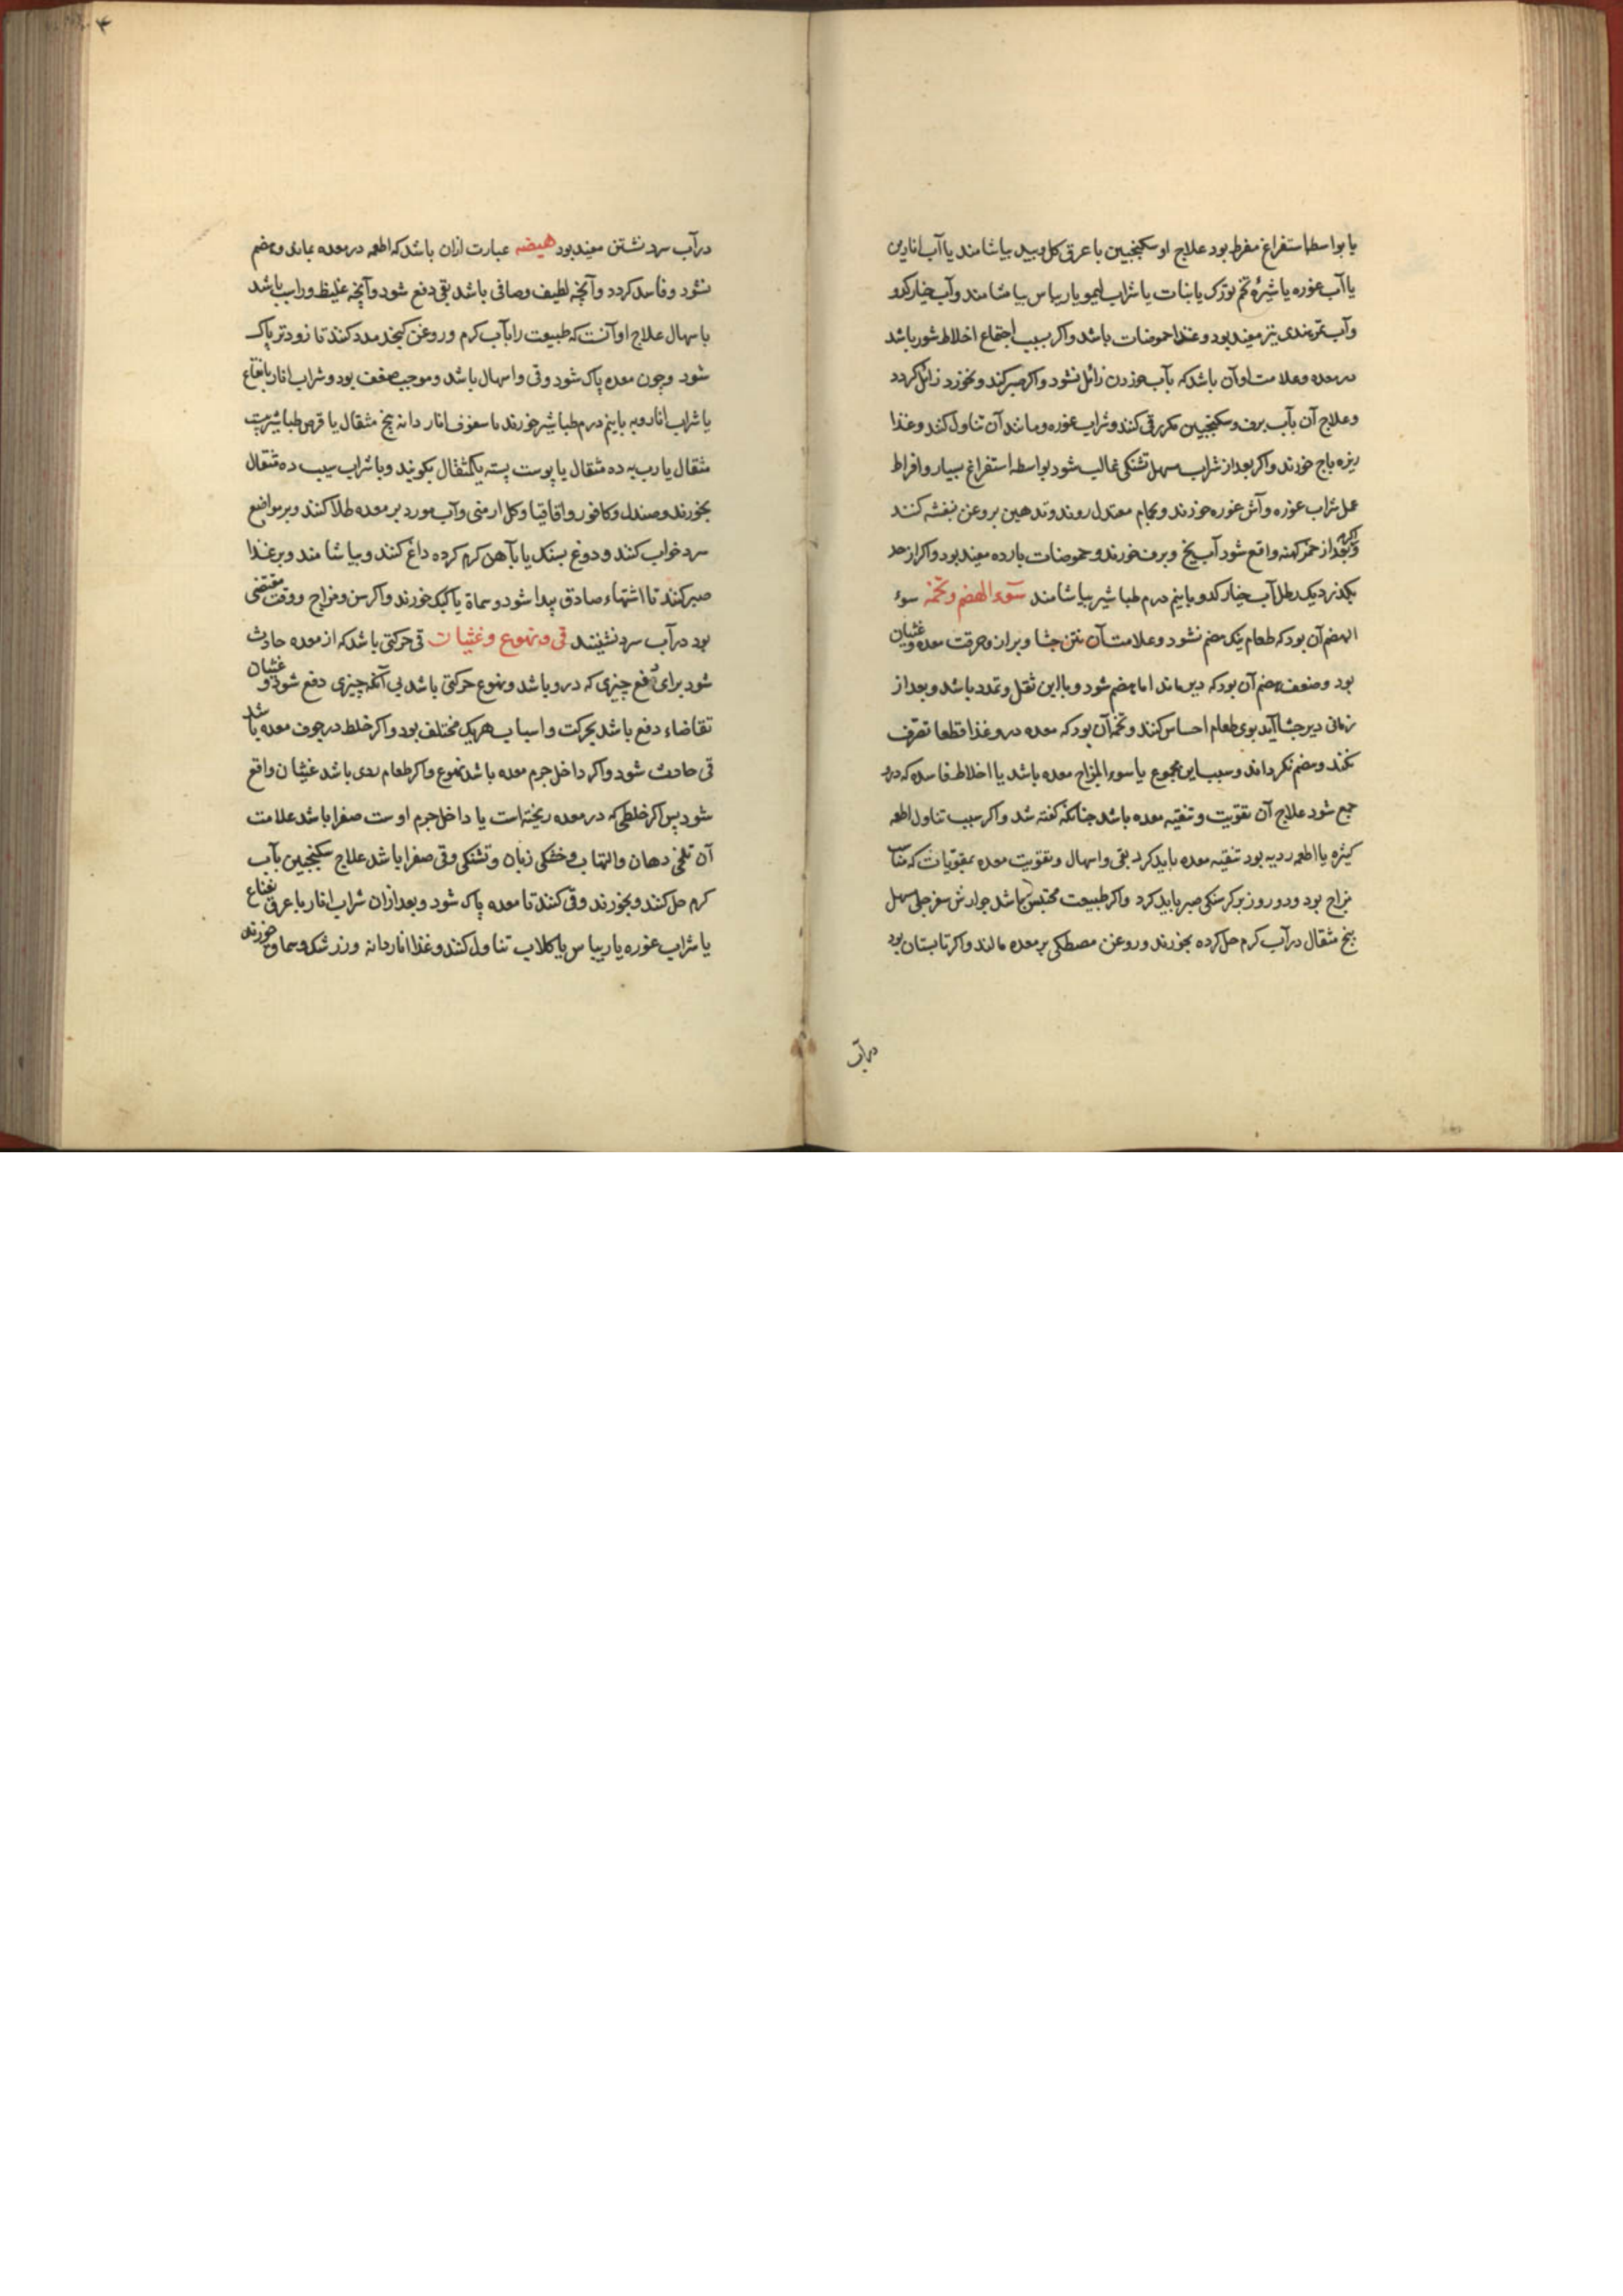 یا بواسطهٔ استفراغ مفرط بود علاج او سکنجبین با عرق کل و بید بیاشامند یا آب انارین
یا آب غوره یا شیرهٔ تخم بوزک یا نبات یا شراب لیمو یا ریباس بیاشامند و آب خیار کدو
و آب تمر هندی نیز مفید بود و غذا حموضات باشد و اکر بسبب اجتماع اخلاط شور باشد
در معده و علامت او آن باشد که بآب خوردن زائل نشود و اکر صبر کند و نخورد زائل کردد
و علاج آن بآب برف و سکنجبین مکرر قی کنند و شراب غوره و مانند آن تناول کند و غذا
زیره باج خورند و اکر بعد از شراب مسهل تشنکی غالب شود بواسطه استفراغ بسیار و افراط
عمل شراب غوره و آش غوره خورند و بحمام معتدل روند و تدهین بروغن بنفشه کنند
و اکر بعد از خمر کهنه واقع شود آب یخ و برف خورند و حموضات بارده مفید بود و اکر از حد
بکذرد یک رطل آب خیار کدو با نیم درم طباشیر بیاشامند سوء الهضم و تخمه سوء
الهضم آن بود که طعام نیک هضم نشود و علامت آن نتن جشا و براز و حرقت معده و غثیان
بود و ضعف هضم آن بود که دیر ماند اما هضم شود و با این ثقل و تمدد باشد و بعد از
زمانی دیر جشا آید بوی طعام احساس کنند و تخمه آن بود که معده در و غذا قطعا تصرف
نکند و هضم نکرداند و سبب این مجموع یا سوء المزاج معده باشد یا اخلاط فاسده که درو
جمع شود علاج آن تقویت و تنقیه معده باشد چنانکه کفته شد و اکر سبب تناول اطعمه
کثیره یا اطعمه ردیه بود تنقیه معده باید کرد بقی و اسهال و تقویت معده بمقویات که مناسب
مزاج بود و دو روز بر کرسنکی صبر باید کرد و اکر طبیعت محتبس باشد جوارش سفرجلی مسهل
پنج مثقال در آب کرم حل کرده بخورند و روغن مصطکی بر معده مالند و اکر تابستان بود
در آب
۴
در آب سرد نشستن مفید بود هیضه عبارت ازان باشد که اطعمه در معده بماند و هضم
نشود و فاسد کردد و آنچه لطیف و صافی باشد بقی دفع شود و آنچه غلیظ و راسب باشد
باسهال علاج او آنست که طبیعت را بآب کرم و روغن کنجد مدد کنند تا زودتر پاک
شود و چون معده پاک شود و قی و اسهال باشد و موجب ضعف بود و شراب انار با نعناع
یا شراب انار و به با نیم درم طباشیر خورند یا سفوف انار دانه پنج مثقال یا قرص طباشیر
مثقال یا رب به ده مثقال یا پوست پسته یکمثقال بکوبند و با شراب سیب ده مثقال
بخورند و صندل و کافور و اقاقیا و کل ارمنی و آب مورد بر معده طلا کنند و بر مواضع
سرد خواب کنند و دوغ بسنک یا بآهن کرم کرده داغ کنند و بیاشامند و بر غذا
صبر کنند تا اشتهاء صادق پیدا شود و سماق یا کبک خورند و اکر سن و مزاج و وقت مقتضی
بود در آب سرد نشینند قی و تهوع و غثیان قی حرکتی باشد که از معده حادث
شود برای دفع چیزی که درو باشد و تهوع حرکتی باشد بی آنکه چیزی دفع شود و غثیان
تقاضاء دفع باشد بحرکت و اسباب هر یک مختلف بود و اکر خلط در جوف معده باشد
قی حادث شود و اکر داخل جرم معده باشد تهوع و اکر طعام ردی باشد غثیان واقع
شود پس اکر خلطی که در معده ریخته است یا داخل جرم اوست صفرا باشد علامت
آن تلخی دهان و التهاب و خشکی زبان و تشنکی و قی صفرا باشد علاج سکنجبین بآب
کرم حل کنند و بخورند و قی کنند تا معده پاک شود و بعد ازان شراب انار با عرق نعناع
یا شراب غوره یا ریباس یا کلاب تناول کنند و غذا اناردانه و زرشک و سماق خورند